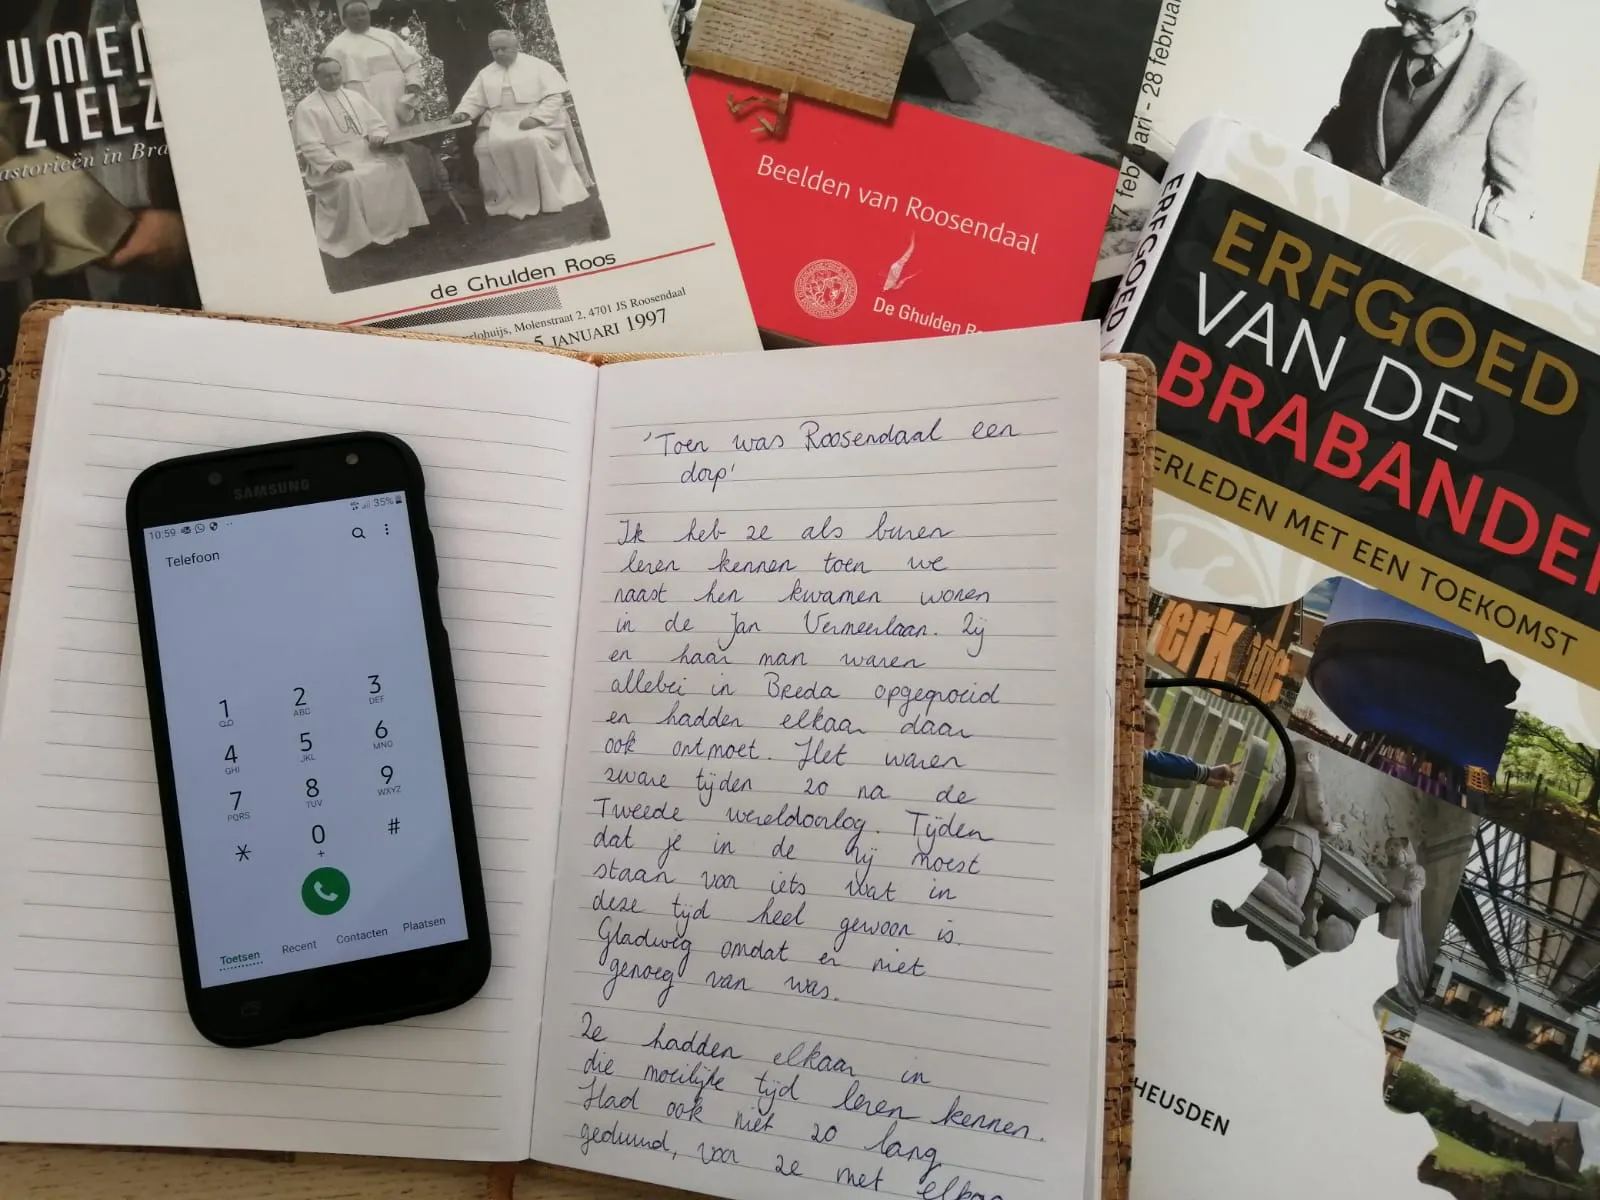 UMEN
ZIELZ
astorieën in Bra
de Ghulden Roos
rlohuijs, Molenstraat 2, 4701 JS Roosendaal
5 JANUARI 1997
Beelden van Roosendaal
De Ghulden R
7 februari - 28 februar
ERFGOED
ERFGOED
VAN DE
BRABANDER
ERLEDEN MET EEN TOEKOMST
erk
HEUSDEN
SAMSUNG
10:59
35%
Telefoon
1
2 ABC
3 DEF
4 GHI
5 JKL
6 MNO
7 PQRS
8 TUV
9 WXYZ
* 0 + #
Toetsen Recent Contacten Plaatsen
'Toen was Roosendaal een
dorp'
Ik heb ze als buren
leren kennen toen we
naast hen kwamen wonen
in de Jan Vermeerlaan. Zij
en haar man waren
allebei in Breda opgegroeid
en hadden elkaar daar
ook ontmoet. Het waren
zware tijden zo na de
Tweede wereldoorlog. Tijden
dat je in de rij moest
staan voor iets wat in
deze tijd heel gewoon is.
Gladweg omdat er niet
genoeg van was.
Ze hadden elkaar in
die moeilijke tijd leren kennen.
Had ook niet zo lang
geduurd, voor ze met elkaa